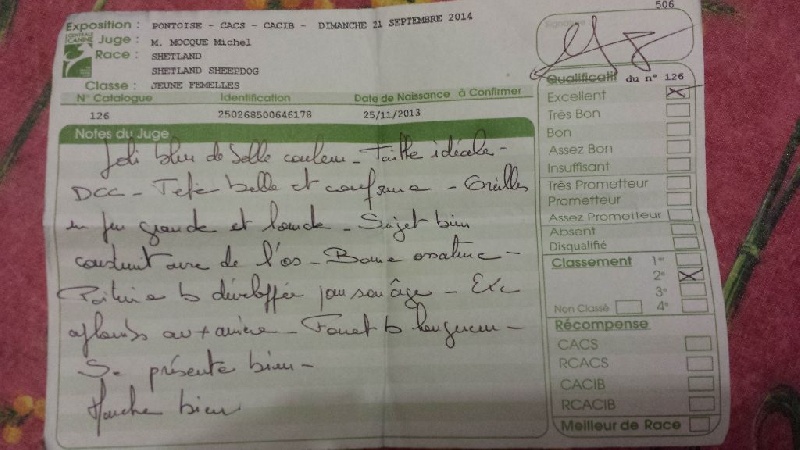 506
Exposition : PONTOISE - CACS - CACIB - DIMANCHE 21 SEPTEMBRE 2014
Juge : M. MOCQUE Michel
Race : SHETLAND
SHETLAND SHEEPDOG
Classe : JEUNE FEMELLES
N° Catalogue Identification Date de Naissance à Confirmer
126 250268500646178 25/11/2013
Notes du Juge
Joli bleu de belle couleur - Taille idéale -
DCC - Tête belle et conforme - Oreilles
un peu grande et lourde - Sujet bien
construit avec de l'os - Bonne ossature -
Poitrine b développée pour son âge - Exc
aplombs av + arrière - Fouet b longueur -
Se présente bien -
Marche bien
Signature
Qualificatif du n° 126
Excellent
Très Bon
Bon
Assez Bon
Insuffisant
Très Prometteur
Prometteur
Assez Prometteur
Absent
Disqualifié
Classement 1°
2°
3°
Non Classé 4°
Récompense
CACS
RCACS
CACIB
RCACIB
Meilleur de Race